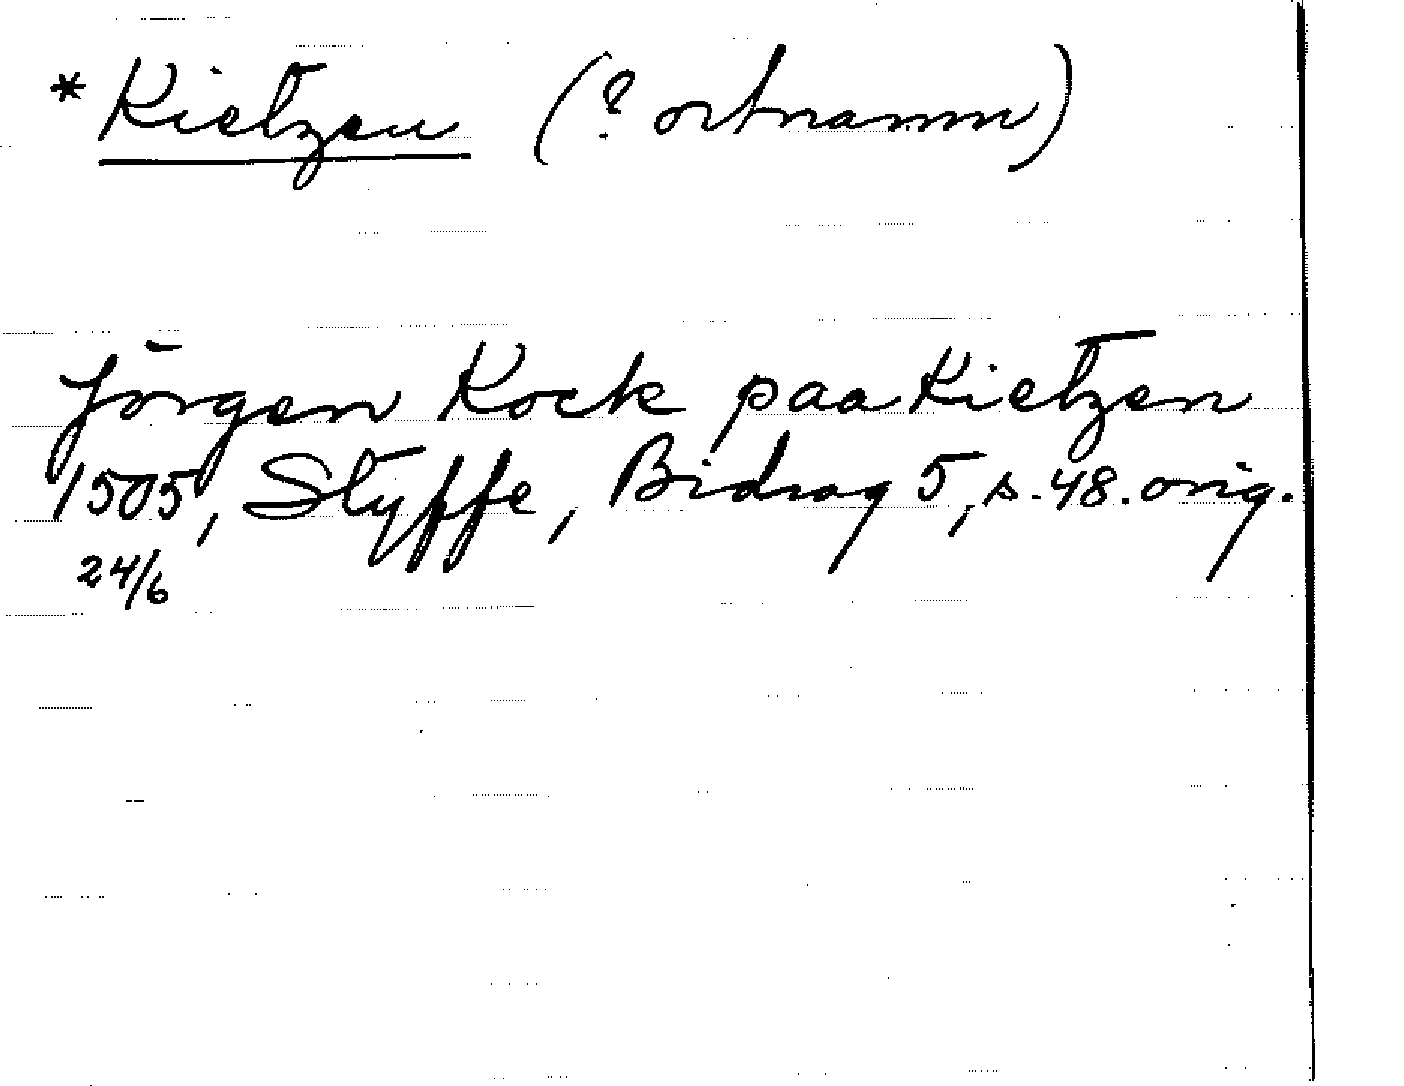 * Kietzen (? ortnamn)
Jörgen Kock paa Kietzen
1505, Styffe, Bidrag 5, s. 48. orig.
24/6